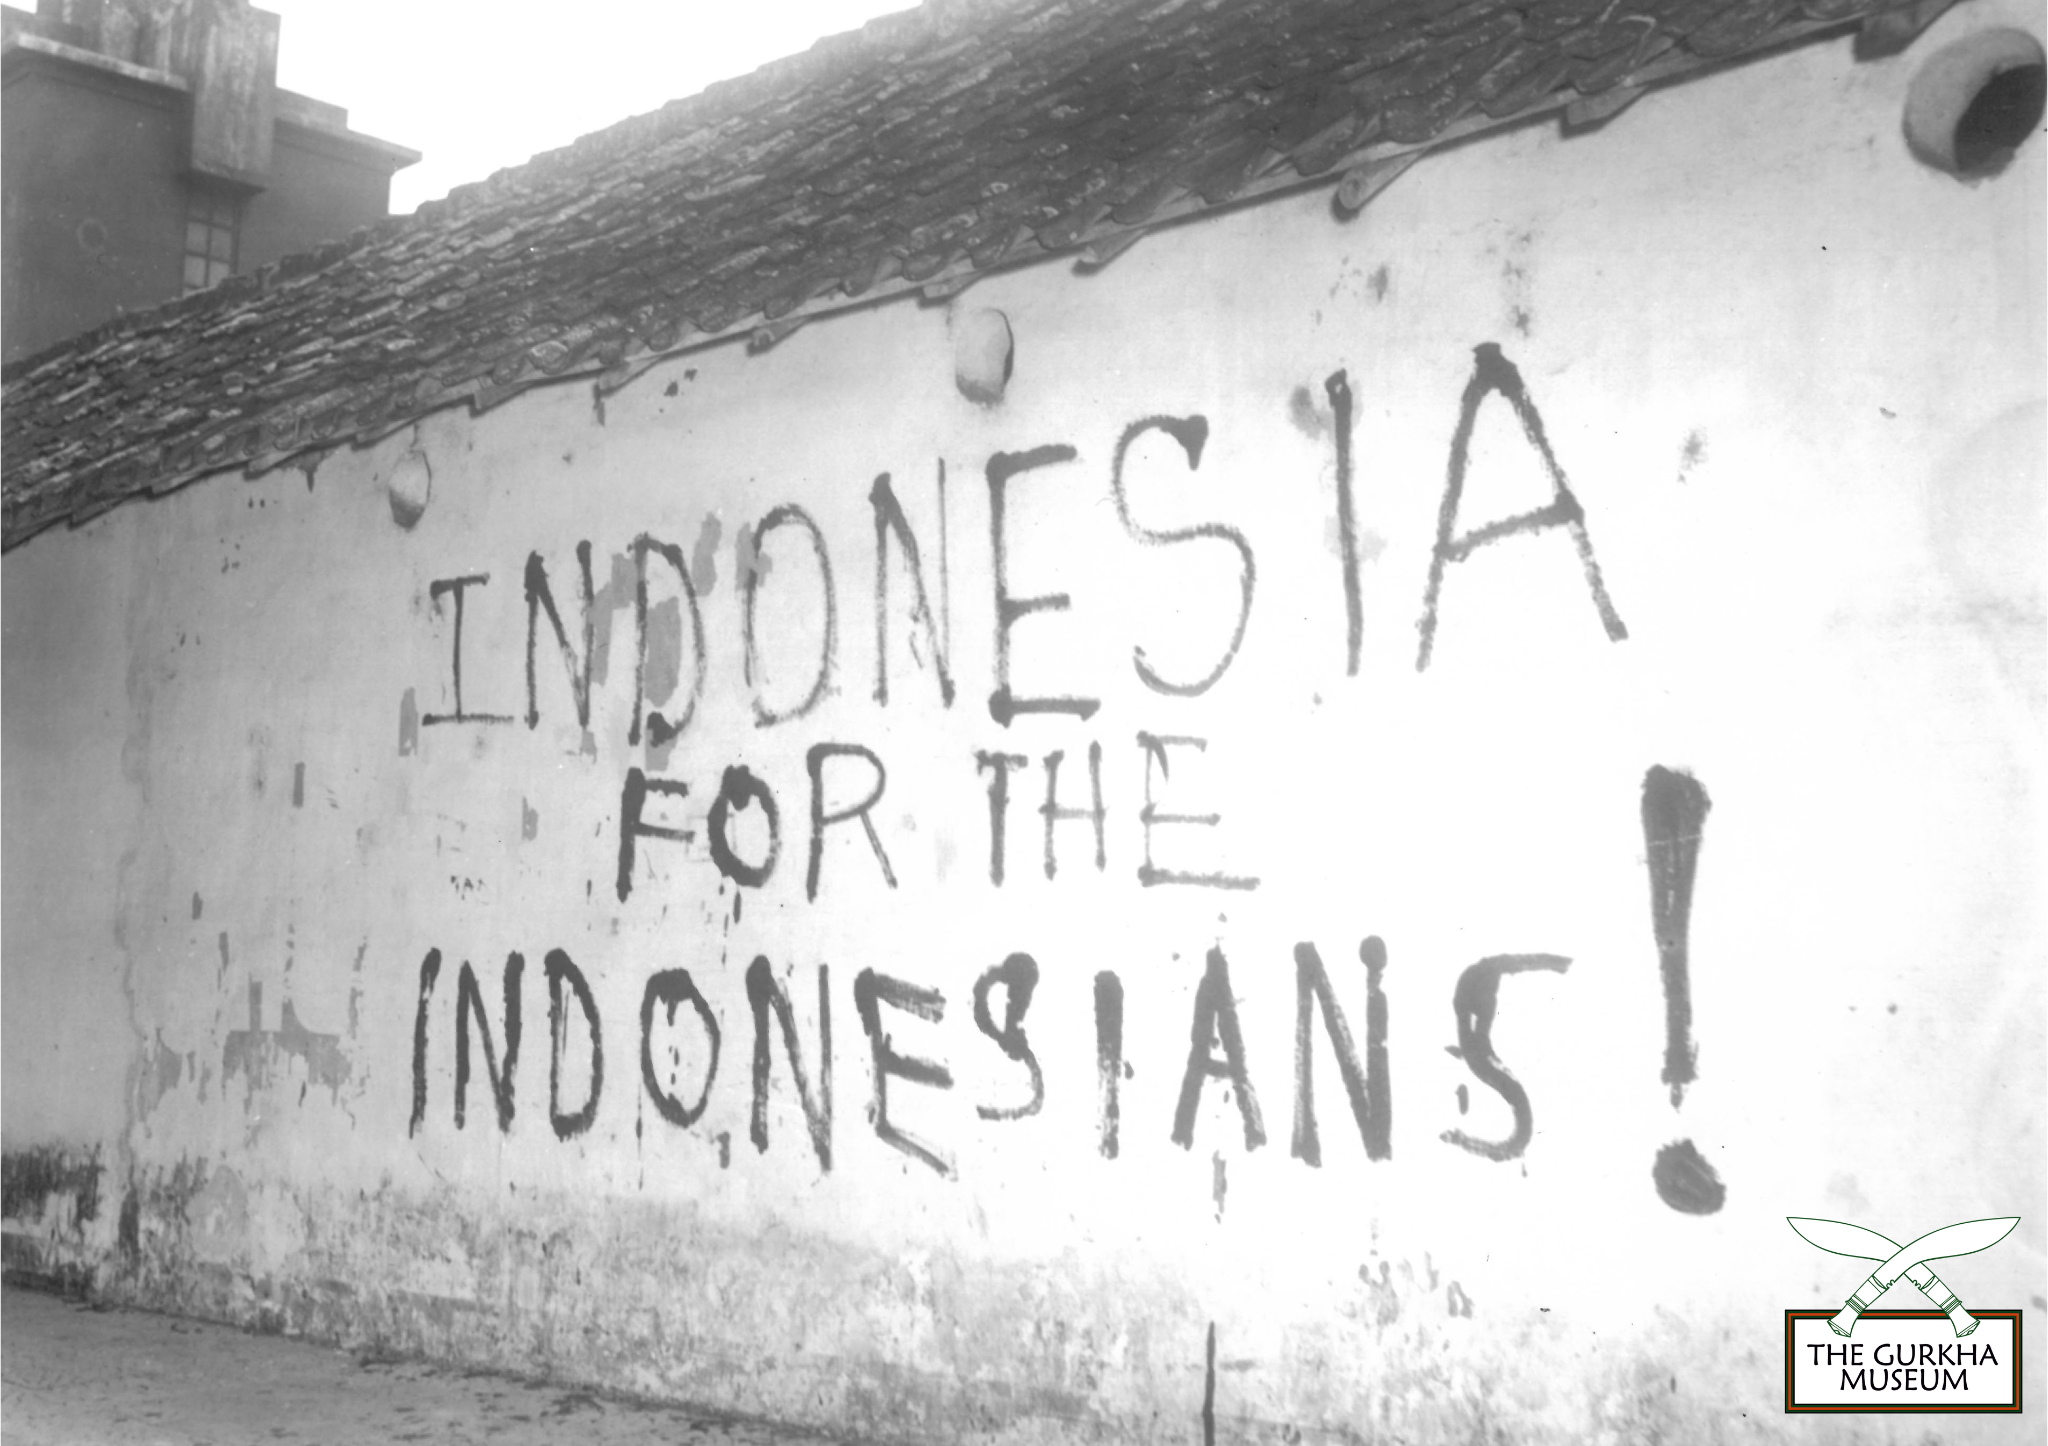 INDONESIA
FOR THE
INDONESIANS!
THE GURKHA
MUSEUM